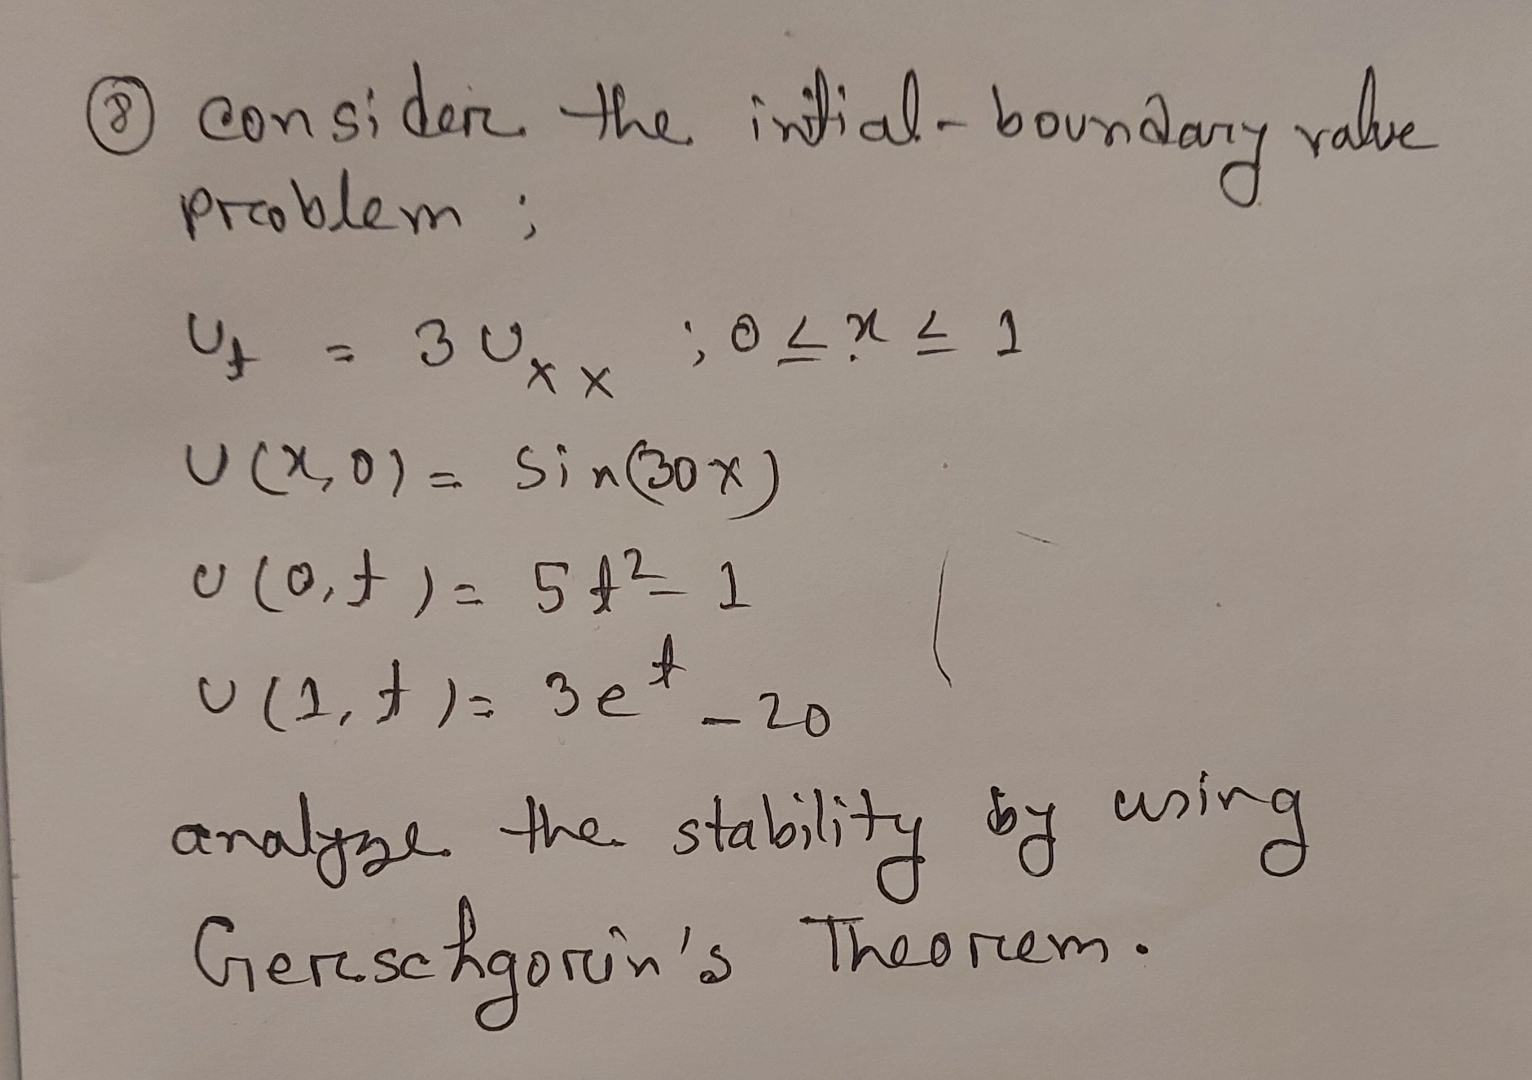 ⑧ consider the initial-boundary value
problem ;
U_t = 3 U_xx ; 0 ≤ x ≤ 1
U(x,0) = Sin(30x)
U(0,t) = 5t² - 1
U(1,t) = 3e^t - 20
analyze the stability by using
Gerschgorin's Theorem.